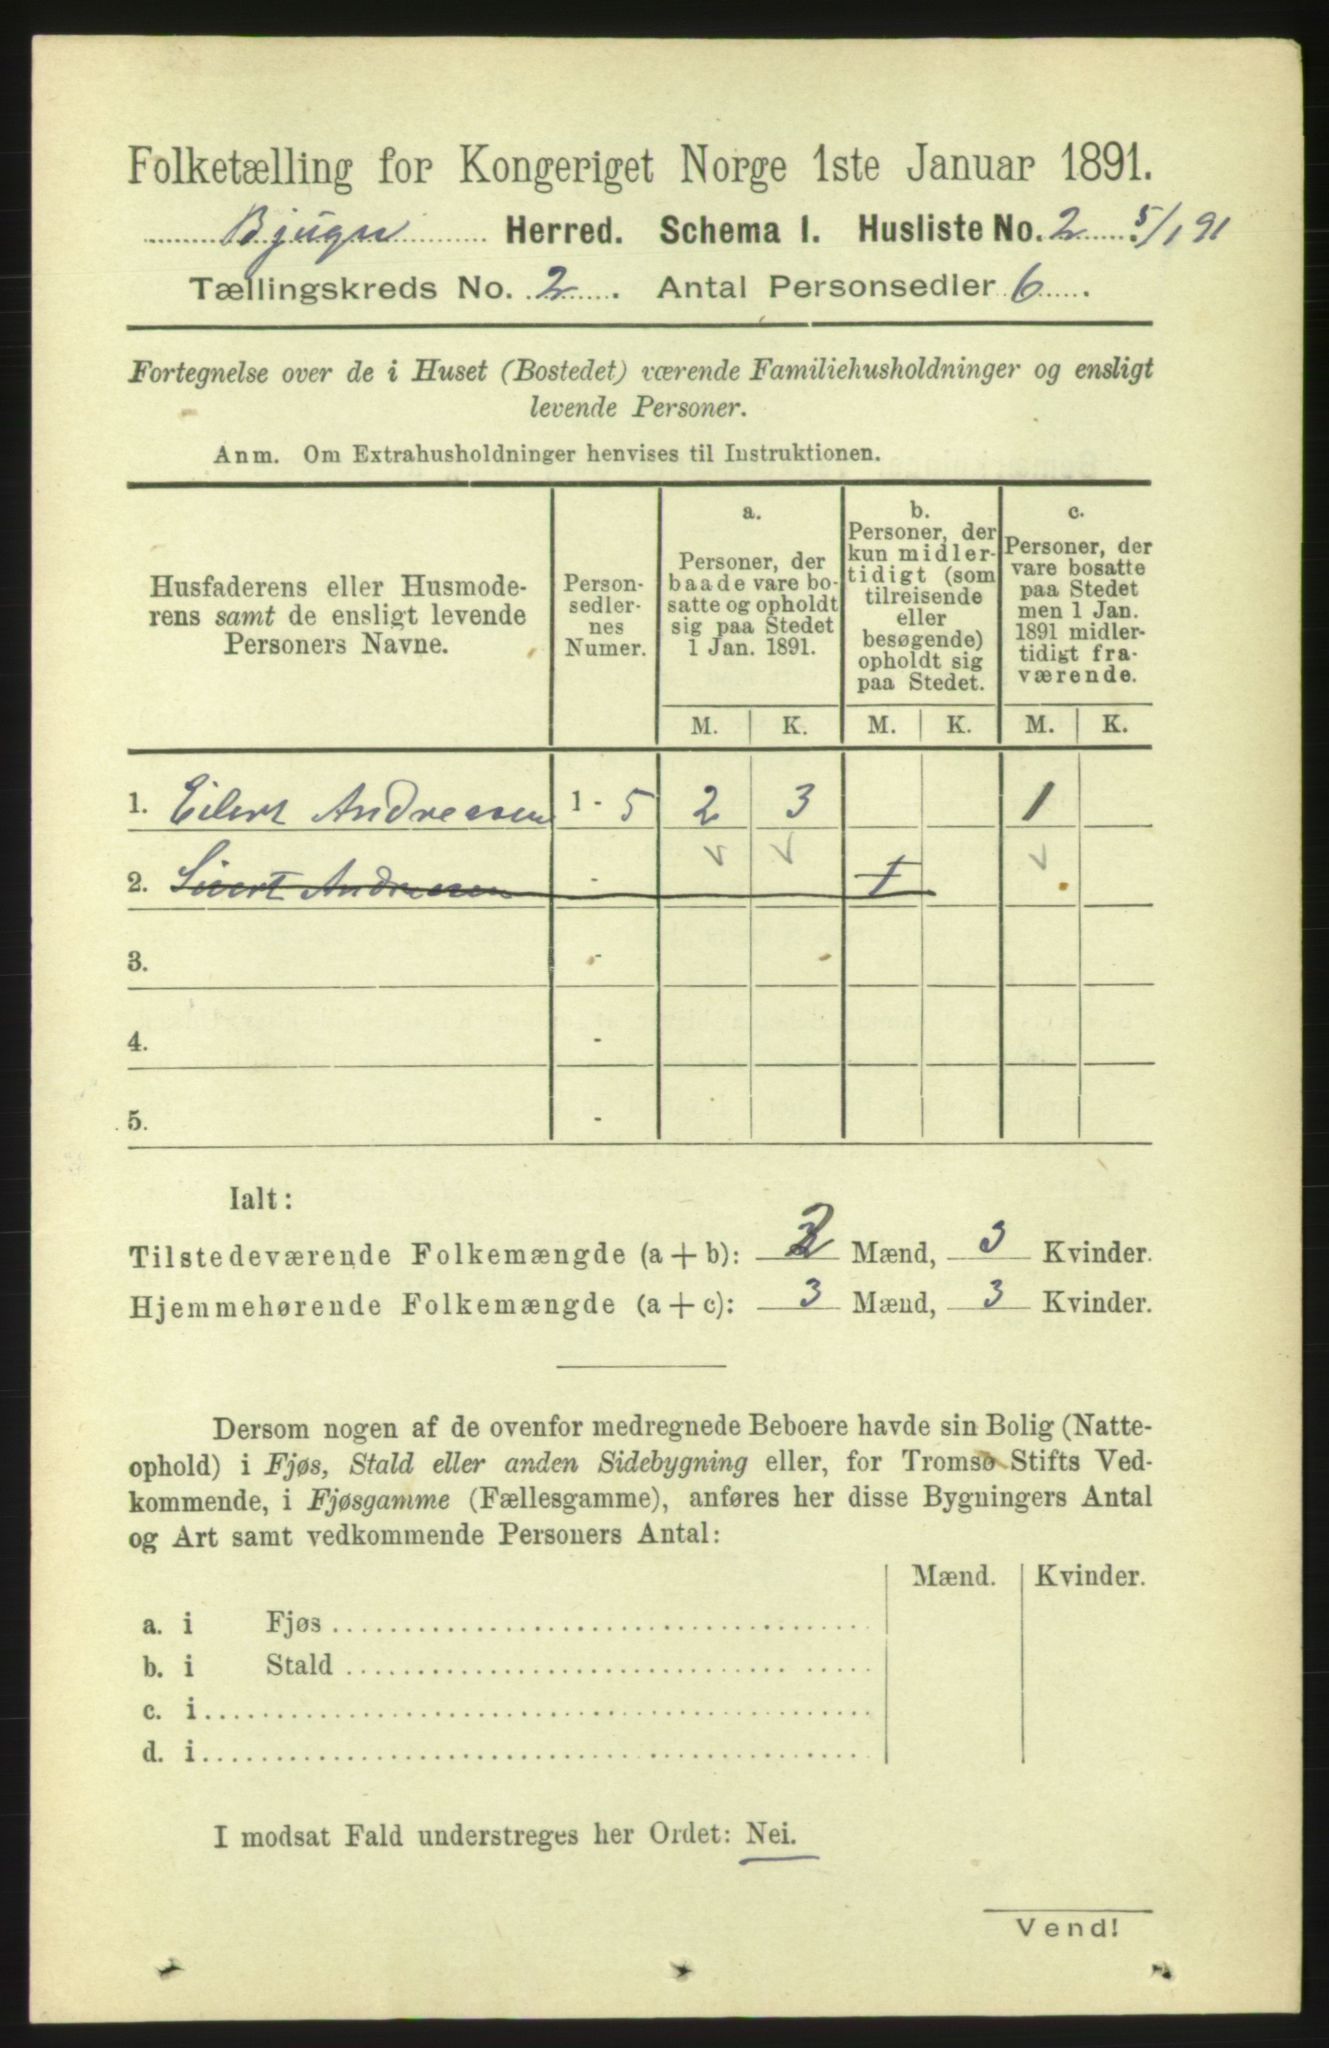 Folketælling for Kongeriget Norge 1ste Januar 1891.
Bjugn Herred. Schema I. Husliste No. 2 5/1 91
Tællingskreds No. 2. Antal Personsedler 6.
Fortegnelse over de i Huset (Bostedet) værende Familiehusholdninger og ensligt
levende Personer.
Anm. Om Extrahusholdninger henvises til Instruktionen.
Husfaderens eller Husmode-
rens samt de ensligt levende
Personers Navne.
Person-
sedler-
nes
Numer.
a.
Personer, der
baade vare bo-
satte og opholdt
sig paa Stedet
1 Jan. 1891.
b.
Personer, der
kun midler-
tidigt (som
tilreisende
eller
besøgende)
opholdt sig
paa Stedet.
c.
Personer, der
vare bosatte
paa Stedet
men 1 Jan.
1891 midler-
tidigt fra-
værende.
M. K. M. K. M. K.
1. Eilert Andreesen 1 - 5 2 3 1
2. Sivert Andreesen - 1
3. -
4. -
5. -
Ialt:
Tilstedeværende Folkemængde (a + b): 2 Mænd, 3 Kvinder.
Hjemmehørende Folkemængde (a + c): 3 Mænd, 3 Kvinder.
Dersom nogen af de ovenfor medregnede Beboere havde sin Bolig (Natte-
ophold) i Fjøs, Stald eller anden Sidebygning eller, for Tromsø Stifts Ved-
kommende, i Fjøsgamme (Fællesgamme), anføres her disse Bygningers Antal
og Art samt vedkommende Personers Antal:
Mænd. Kvinder.
a. i Fjøs
b. i Stald
c. i
d. i
I modsat Fald understreges her Ordet: Nei.
Vend!